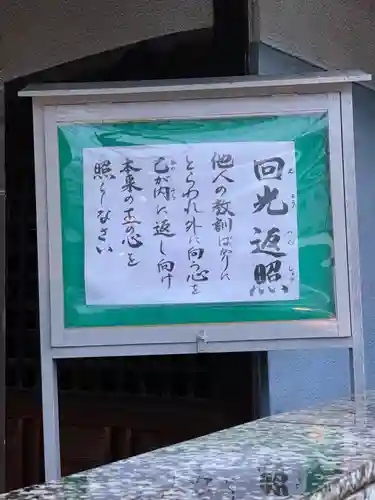 回光返照
えこうへんしょう
他人の教訓ばかりに
とらわれ外に向う心を
己が内に返し向け
本来の主の心を
照しなさい